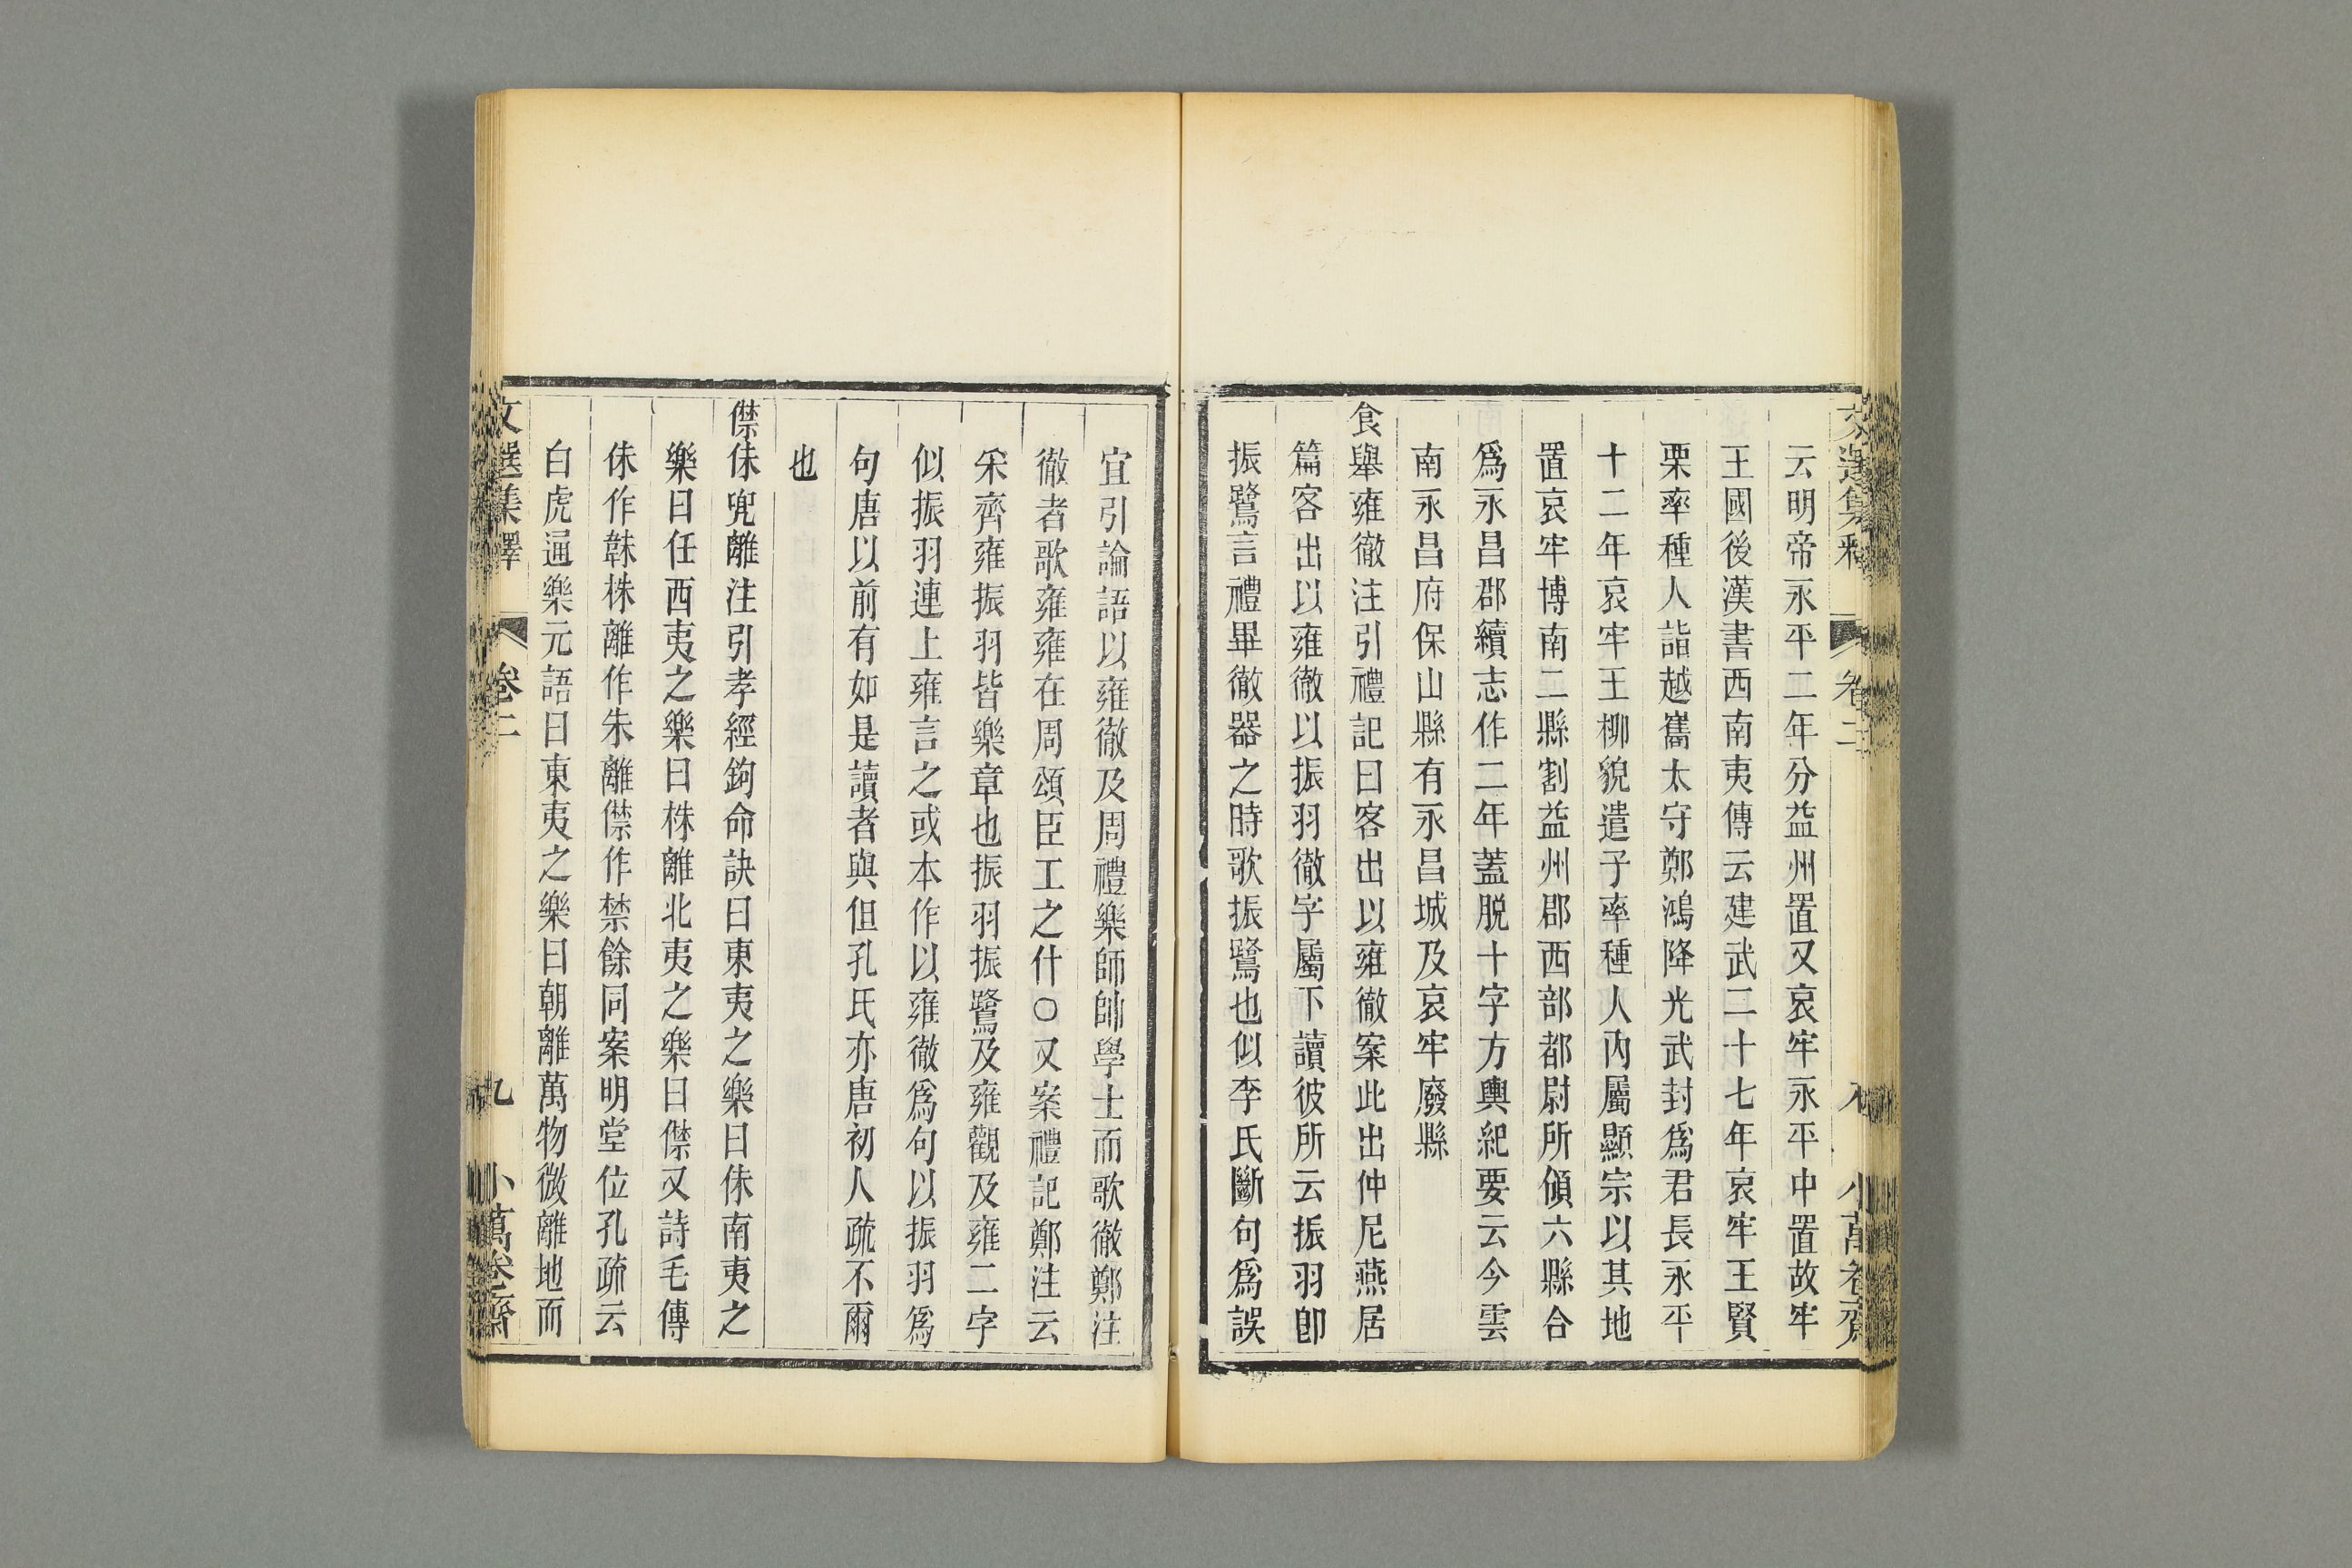 文選集釋 卷二 八 小萬卷齋
云明帝永平二年分益州置又哀牢永平中置故牢
王國後漢書西南夷傳云建武二十七年哀牢王賢
栗率種人詣越巂太守鄭鴻降光武封爲君長永平
十二年哀牢王柳貌遣子率種人內屬顯宗以其地
置哀牢博南二縣割益州郡西部都尉所領六縣合
爲永昌郡續志作二年蓋脫十字方輿紀要云今雲
南永昌府保山縣有永昌城及哀牢廢縣
食舉雍徹注引禮記曰客出以雍徹案此出仲尼燕居
篇客出以雍徹以振羽徹字屬下讀彼所云振羽卽
振鷺言禮畢徹器之時歌振鷺也似李氏斷句爲誤
宜引論語以雍徹及周禮樂師帥學士而歌徹鄭注
徹者歌雍雍在周頌臣工之什○又案禮記鄭注云
采齊雍振羽皆樂章也振羽振鷺及雍觀及雍二字
似振羽連上雍言之或本作以雍徹爲句以振羽爲
句唐以前有如是讀者與但孔氏亦唐初人疏不爾
也
僸佅兜離注引孝經鉤命訣曰東夷之樂曰佅南夷之
樂曰任西夷之樂曰株離北夷之樂曰僸又詩毛傳
佅作韎株離作朱離僸作禁餘同案明堂位孔疏云
白虎通樂元語曰東夷之樂曰朝離萬物微離地而
文選集釋 卷二 九 小萬卷齋